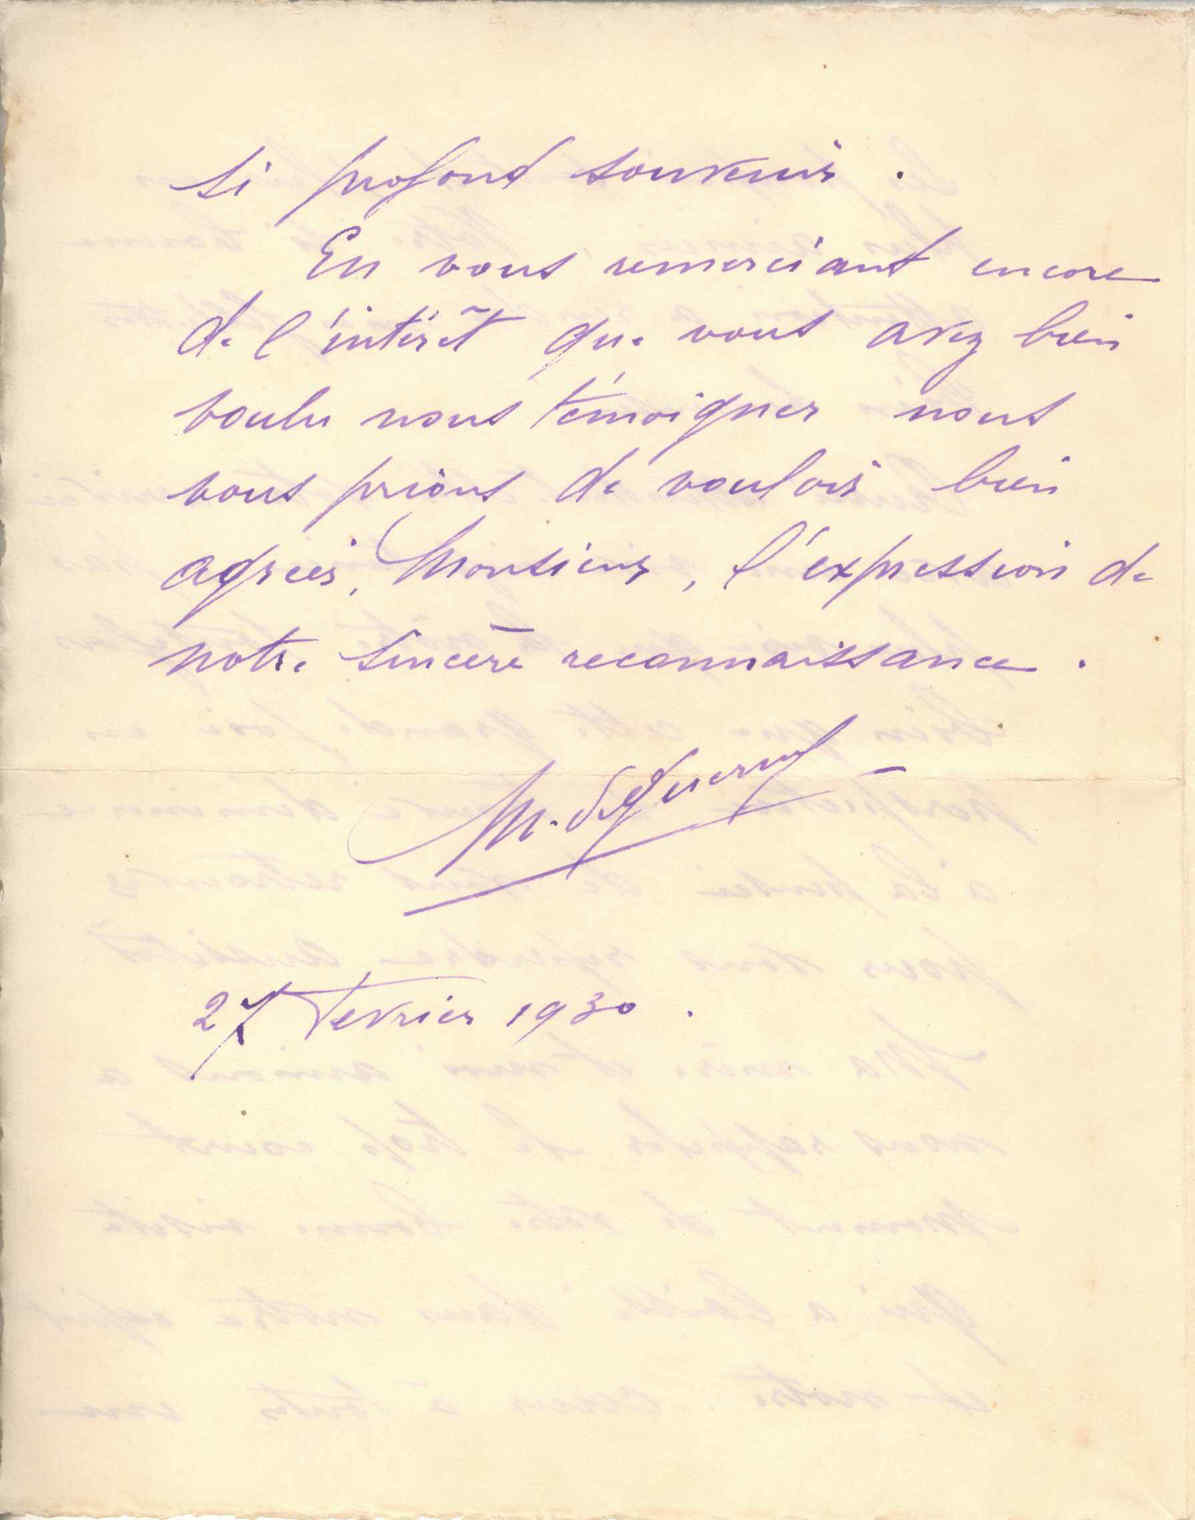 si profond souvenir.
En vous remerciant encore
de l'intérêt que vous avez bien
voulu nous témoigner nous
vous prions de vouloir bien
agréer, Monsieur, l'expression de
notre sincère reconnaissance.
M.
27 Février 1930.